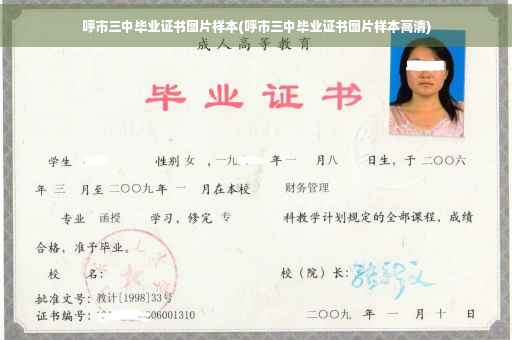 呼市三中毕业证书图片样本(呼市三中毕业证书图片样本高清)
成人高等教育
毕业证书
学生 性别 女 ，一九 年 一 月八 日生，于 二〇〇六
年 三 月至 二〇〇九 年 一 月在本校 财务管理
专业 函授 学习，修完 专 科教学计划规定的全部课程，成绩
合格，准予毕业。
校 名： 校（院）长：
批准文号：教计[1998]33号
证书编号： 06001310 二〇〇九 年 一 月 十 日